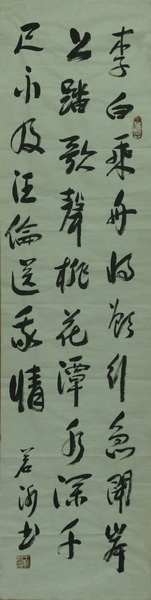 李白乘舟将欲行忽聞岸
上踏歌聲桃花潭水深千
尺不及汪倫送我情
若海书